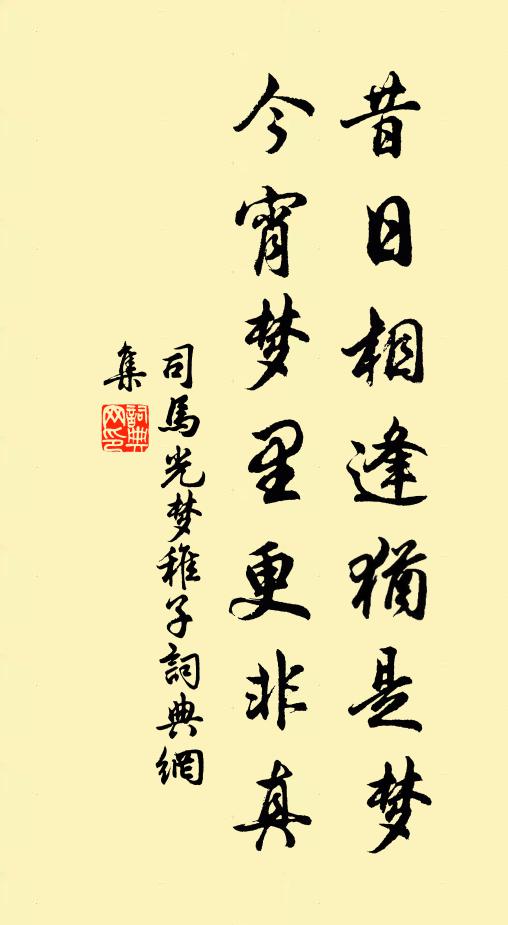 昔日相逢猶是梦
今宵梦里更非真
司馬光梦稚子詞典網
集
詞典
网印